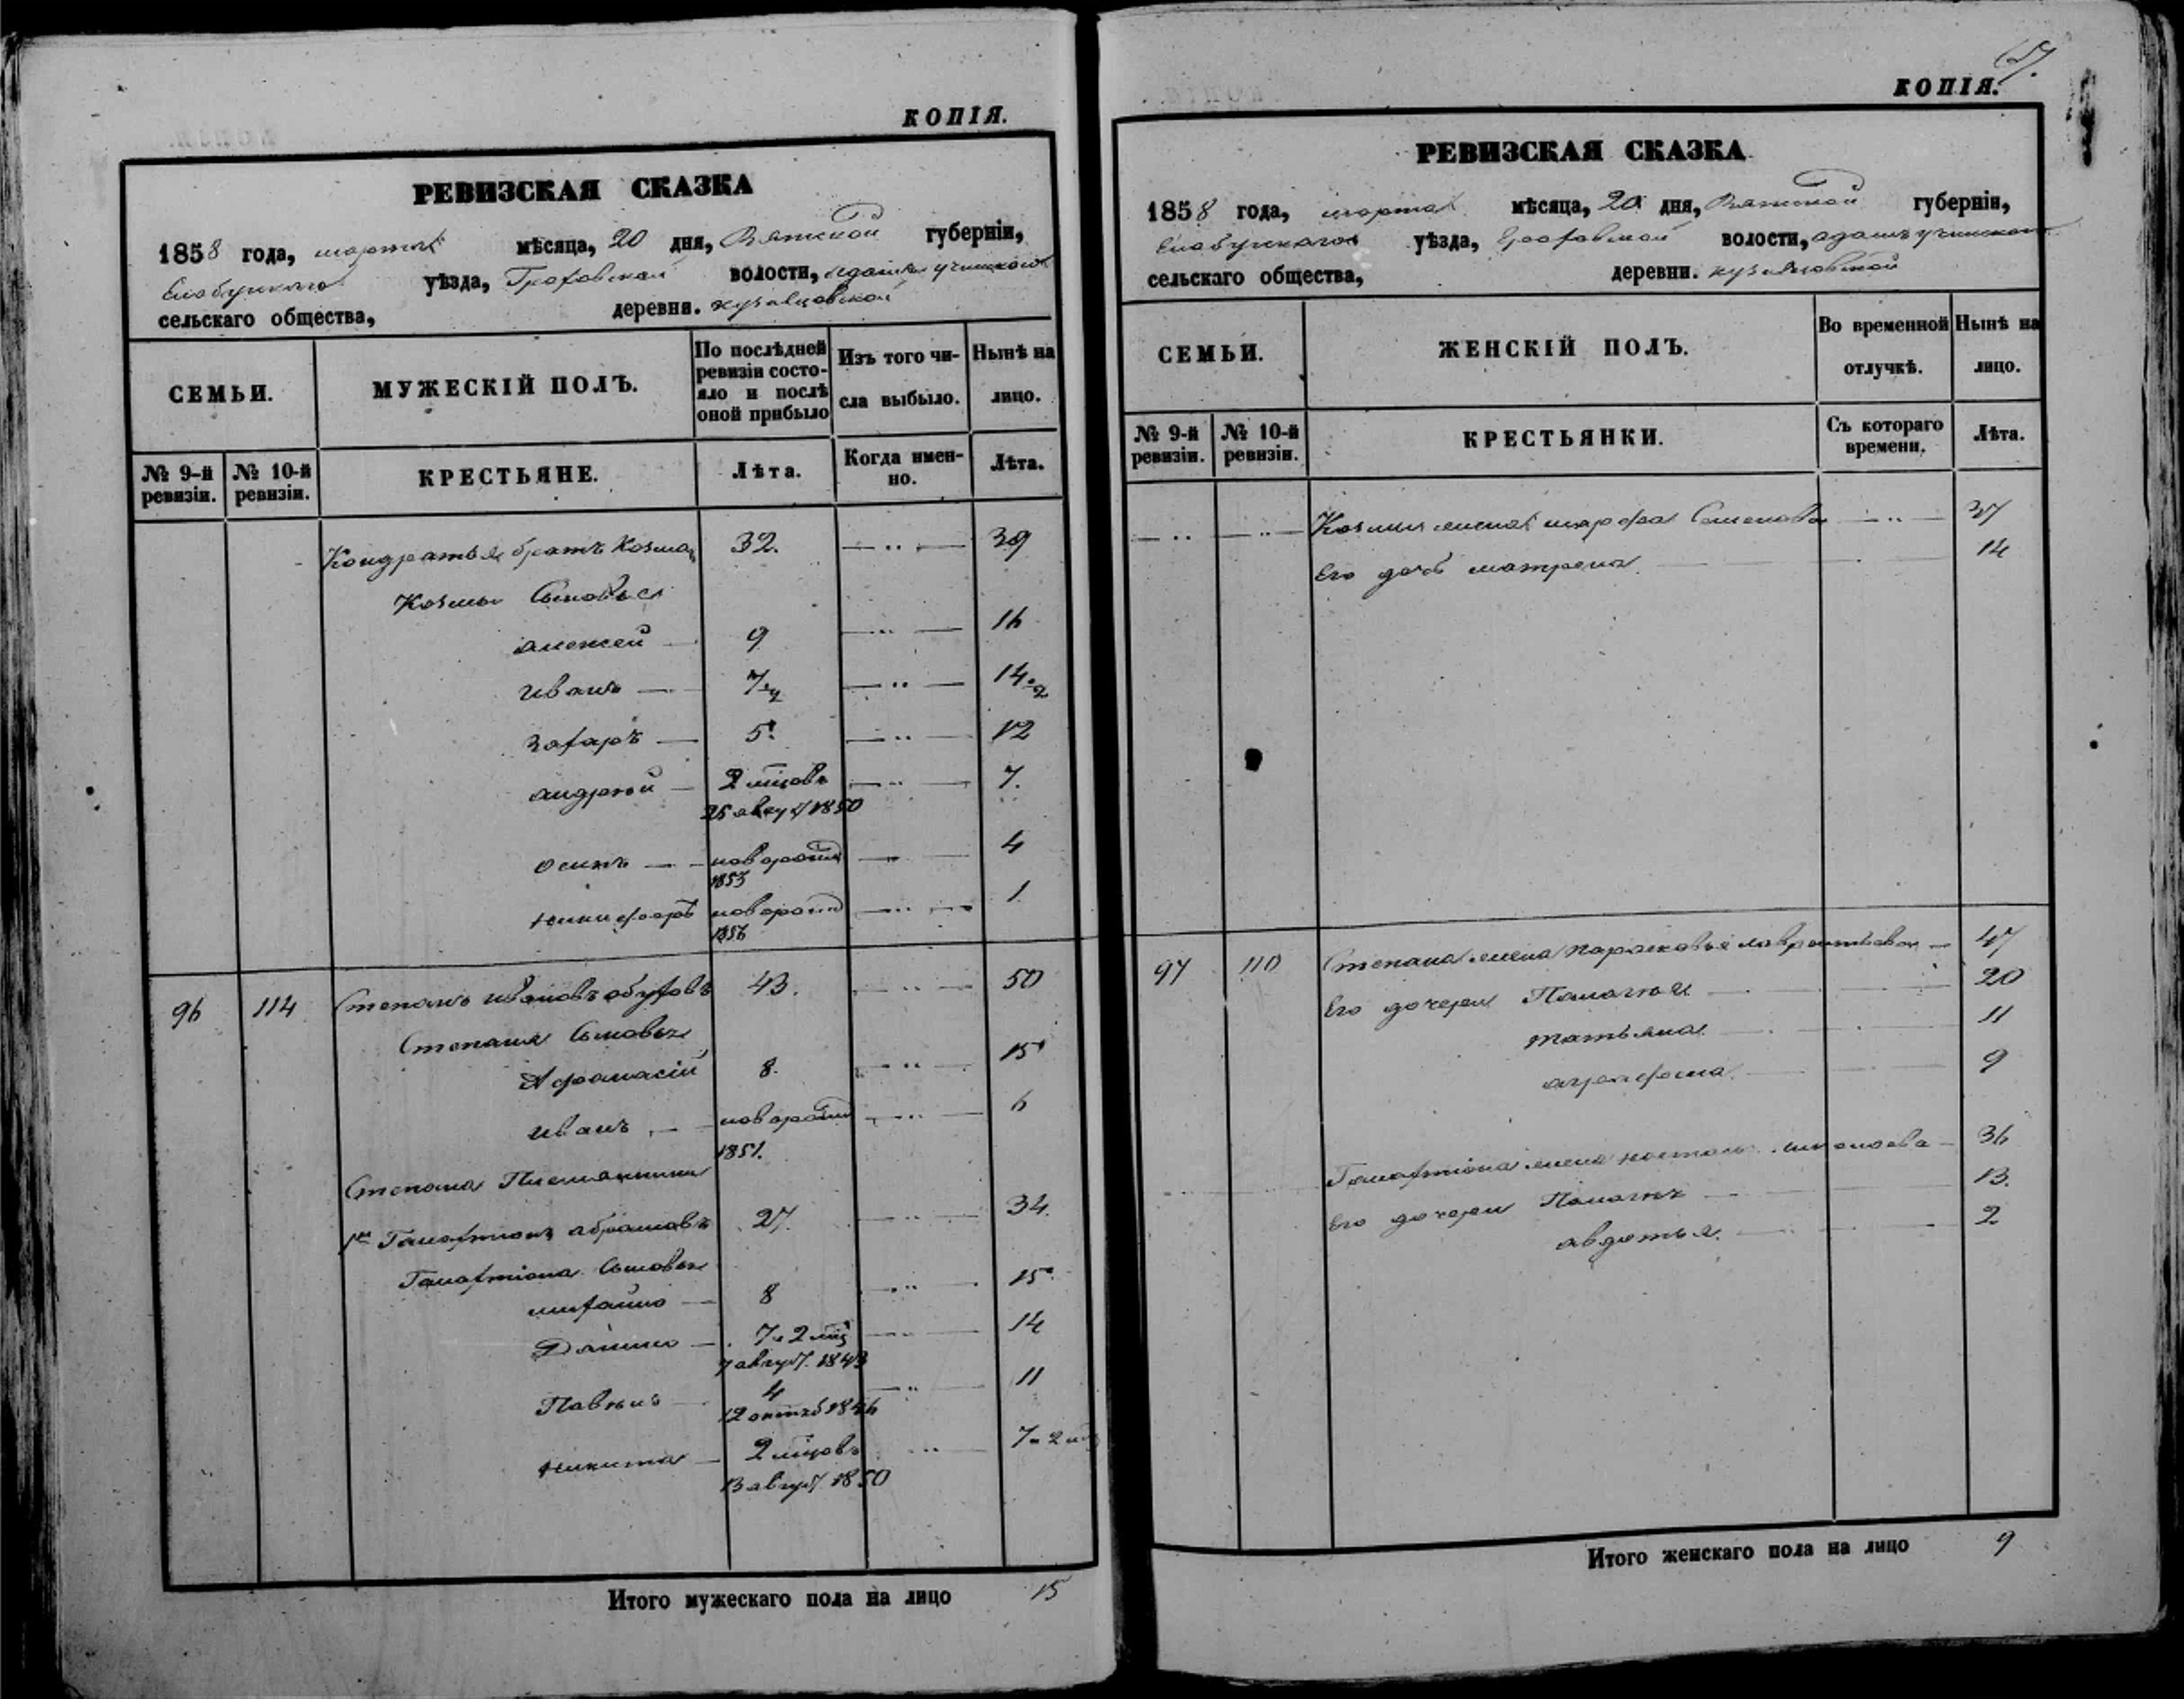 КОПІЯ.
РЕВИЗСКАЯ СКАЗКА
1858 года, марта мѣсяца, 20 дня, Вятской губерніи,
Елабужскаго уѣзда, Граховской волости,
сельскаго общества, деревни.
СЕМЬИ.
МУЖЕСКІЙ ПОЛЪ.
По послѣдней ревизіи состояло и послѣ оной прибыло
Изъ того числа выбыло.
Нынѣ на лицо.
№ 9-й ревизіи.
№ 10-й ревизіи.
КРЕСТЬЯНЕ.
Лѣта.
Когда именно.
Лѣта.
Кондратья братъ Козма 32. 39
Козмы Сыновья
алексей 9 16
иванъ 7 14
захаръ 5 12
андрей 2 мцовъ 7.
25 август 1850
осипъ новорожд 4
1853
никифоръ новорожд 1
1856
96 114 Степанъ ивановъ обуховъ 43. 50
Степана Сыновья
Афанасій 8. 15
иванъ новорожд 6
1851.
Степана Племянники
1й Галахтионъ абрамовъ 27. 34.
Галахтіона Сыновья
михайло 8 15
Данило 7 и 2 мц 14
7 август. 1843
Павелъ 4 11
12 октяб 1846
никита 2 мцовъ 7 и 2 мц
13 август 1850
Итого мужескаго пола на лицо 15
КОПІЯ.
РЕВИЗСКАЯ СКАЗКА
1858 года, марта мѣсяца, 20 дня, Вятской губерніи,
Елабужскаго уѣзда, Граховской волости,
сельскаго общества, деревни.
СЕМЬИ.
ЖЕНСКІЙ ПОЛЪ.
Во временной отлучкѣ.
Нынѣ на лицо.
№ 9-й ревизіи.
№ 10-й ревизіи.
КРЕСТЬЯНКИ.
Съ котораго времени.
Лѣта.
Козмы жена марфа Семенова 37
Его дочь матрена 14
97 110 Степана жена Парасковья лаврентьева 47
Его дочери Пелагея 20
татьяна 11
аграфена 9
Галахтіона жена 36
Его дочери Пелагея 13.
авдотья 2
Итого женскаго пола на лицо 9